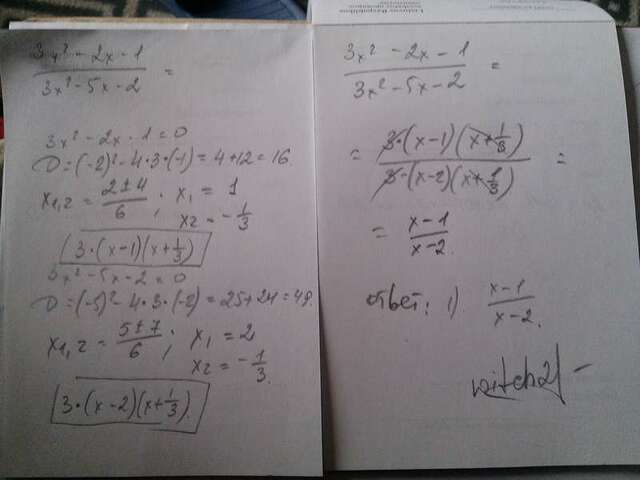 3x² - 2x - 1
3x² - 5x - 2 =
3x² - 2x - 1 = 0
D = (-2)² - 4·3·(-1) = 4 + 12 = 16
x1,2 = (2 ± 4)/6 ; x1 = 1
x2 = -1/3
3·(x-1)(x+1/3)
3x² - 5x - 2 = 0
D = (-5)² - 4·3·(-2) = 25 + 24 = 49
x1,2 = (5 ± 7)/6 ; x1 = 2
x2 = -1/3
3·(x-2)(x+1/3)
3x² - 2x - 1
3x² - 5x - 2 =
= 3·(x-1)(x+1/3)
3·(x-2)(x+1/3) =
= x-1
x-2
ответ: 1) x-1
x-2
witch21